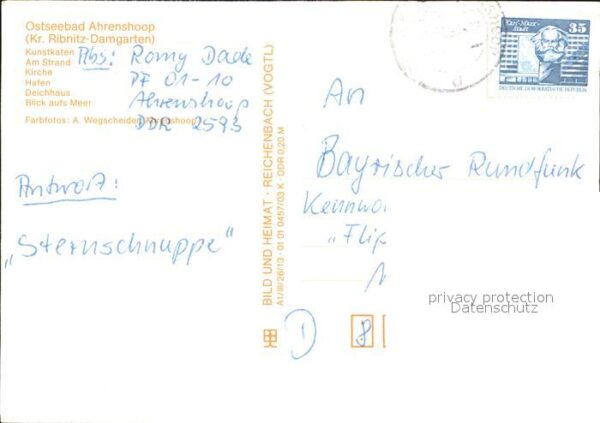 Ostseebad Ahrenshoop
(Kr. Ribnitz-Damgarten)
Kunstkaten
Am Strand
Kirche
Hafen
Deichhaus
Blick aufs Meer
Farbfotos: A. Wegscheider, Ahrenshoop
Abs: Romy Dade
PF 01-10
Ahrenshoop
DDR 2593
Antwort:
„Sternschnuppe"
BILD UND HEIMAT · REICHENBACH (VOGTL)
A1/III/26/13 · 01 01 0457/03 K · DDR 0,20 M
Karl-Marx-
Stadt
35
DEUTSCHE DEMOKRATISCHE REPUBLIK
An
Bayrischer Rundfunk
Kennwo
„Flip
privacy protection
Datenschutz
D 8